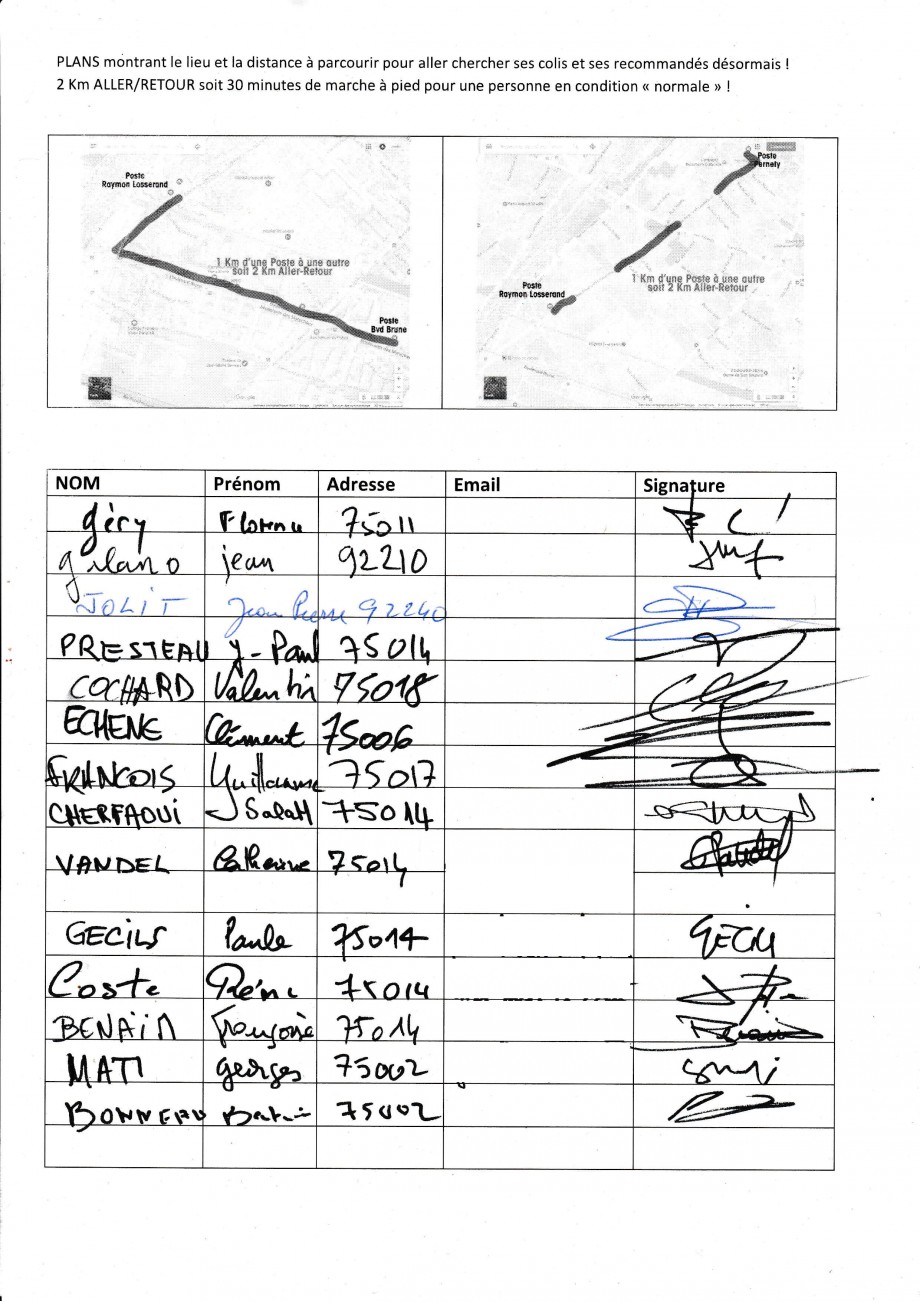 PLANS montrant le lieu et la distance à parcourir pour aller chercher ses colis et ses recommandés désormais !
2 Km ALLER/RETOUR soit 30 minutes de marche à pied pour une personne en condition « normale » !
Poste
Raymon Losserand
1 Km d'une Poste à une autre
soit 2 Km Aller-Retour
Poste
Bvd Brune
Poste
Pernety
1 Km d'une Poste à une autre
soit 2 Km Aller-Retour
Poste
Raymon Losserand
NOM Prénom Adresse Email Signature
géry 75011
jean 92210
JOLIT Jean Pierre 92240
PRESTEAU J-Paul 75014
COCHARD Valentin 75018
ECHENE Clément 75006
FRANCOIS Guillaume 75017
CHERFAOUI Salah 75014
VANDEL Catherine 75014
GECILS Paule 75014
Coste Rémi 75014
BENAIN Françoise 75014
MATI georges 75002
BONNEAU 75002